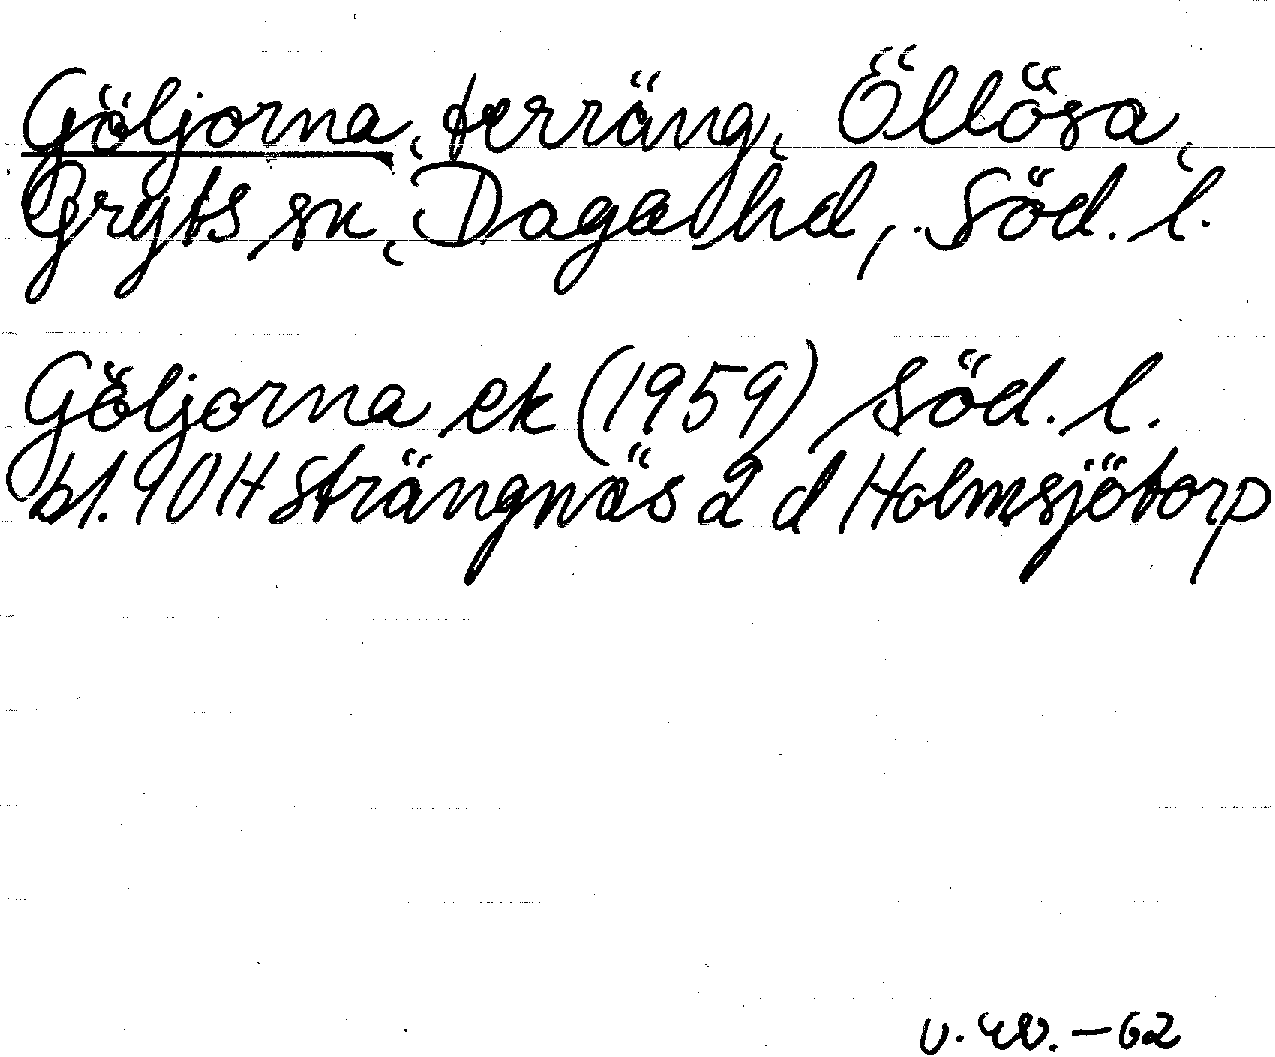 Göljorna, terräng, Öllösa,
Gryts sn, Daga hd, Söd. l.
Göljorna ek (1959) Söd. l.
bl. 90H Strängnäs 2 d Holmsjötorp
-62